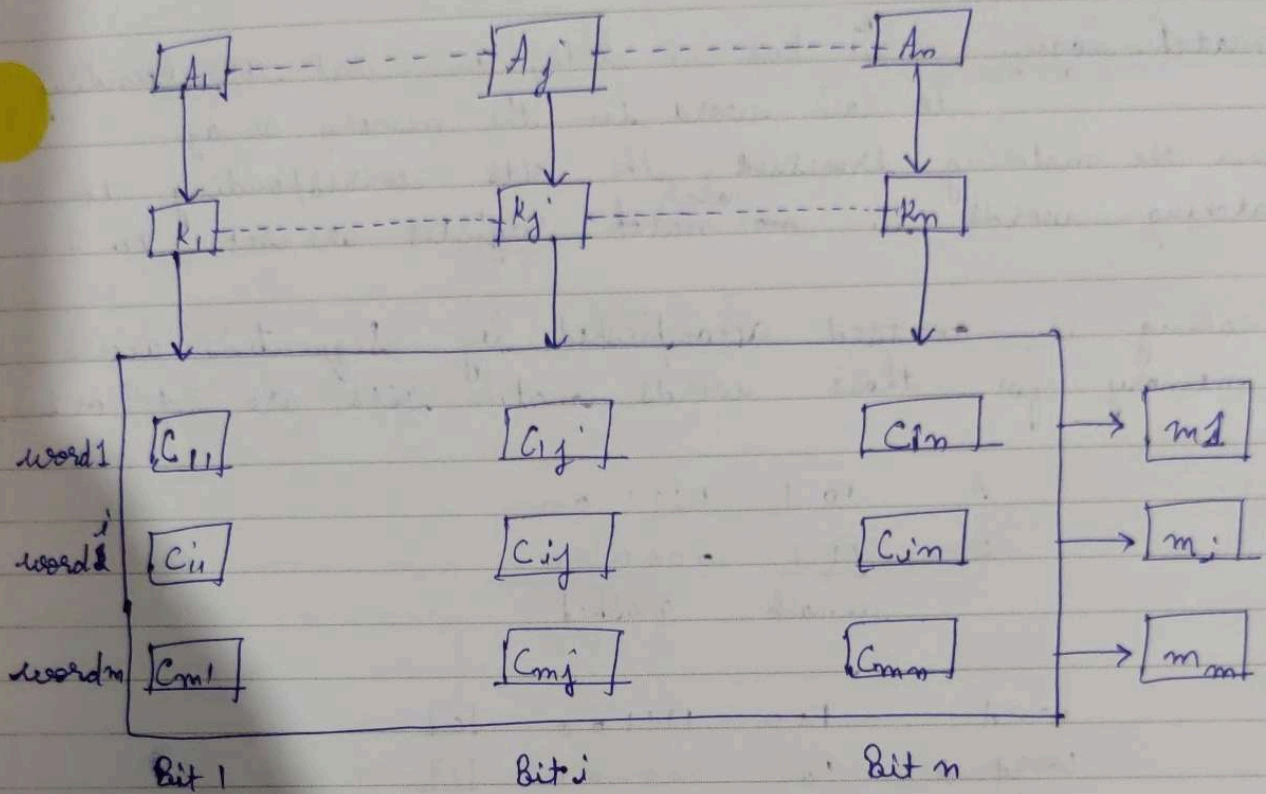 A1 Aj An
K1 Kj Kn
word1 C11 C1j C1n m1
wordi Ci1 Cij Cin mi
wordm Cm1 Cmj Cmn mm
Bit 1 Bit i Bit n